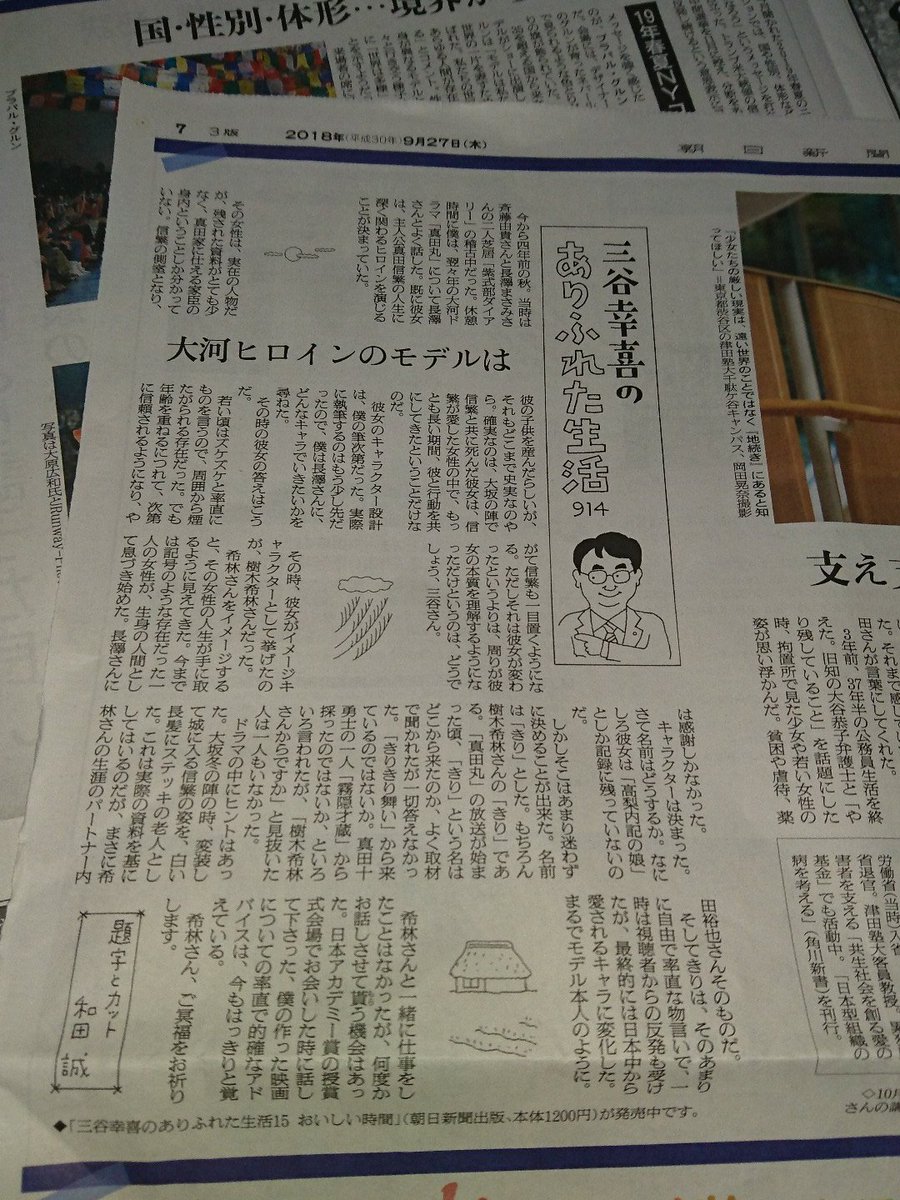 国・性別・体形…境界が
19年春夏NY
プラバル・グルン
7 3版 2018年(平成30年)9月27日(木) 朝日新聞
「少女たちの厳しい現実は、遠い世界のことではなく『地続き』にあると知
ってほしい」=東京都渋谷区の津田塾大千駄ケ谷キャンパス、岡田晃奈撮影
三谷幸喜の
ありふれた生活
914
大河ヒロインのモデルは
今から四年前の秋。当時は
斉藤由貴さんと長澤まさみさ
んの二人芝居「紫式部ダイア
リー」の稽古中だった。休憩
時間に僕は、翌々年の大河ド
ラマ「真田丸」について長澤
さんとよく話した。既に彼女
は、主人公真田信繁の人生に
深く関わるヒロインを演じる
ことが決まっていた。
その女性は、実在の人物だ
が、残された資料がとても少
なく、真田家に仕える家臣の
身内ということしか分かって
いない。信繁の側室となり、
彼の子供を産んだらしいが、
それもどこまで史実なのや
ら。確実なのは、大坂の陣で
信繁と共に死んだ彼女は、信
繁が愛した女性の中で、もっ
とも長い期間、彼と行動を共
にしてきたということだけな
のだ。
彼女のキャラクター設計
は、僕の筆次第だった。実際
に執筆するのはもう少し先だ
ったので、僕は長澤さんに、
どんなキャラでいきたいかを
尋ねた。
その時の彼女の答えはこう
だ。
若い頃はズケズケと率直に
ものを言うので、周囲から煙
たがられる存在だった。でも
年齢を重ねるにつれて、次第
に信頼されるようになり、や
がて信繁も一目置くようにな
る。ただしそれは彼女が変わ
ったというよりは、周りが彼
女の本質を理解するようにな
っただけというのは、どうで
しょう、三谷さん。
その時、彼女がイメージキ
ャラクターとして挙げたの
が、樹木希林さんだった。
希林さんをイメージする
と、その女性の人生が手に取
るように見えてきた。今まで
は記号のような存在だった一
人の女性が、生身の人間とし
て息づき始めた。長澤さんに
は感謝しかなかった。
キャラクターは決まった。
さて名前はどうするか。なに
しろ彼女は「高梨内記の娘」
としか記録に残っていないの
だ。
しかしそこはあまり迷わず
に決めることが出来た。名前
は「きり」とした。もちろん
樹木希林さんの「きり」であ
る。「真田丸」の放送が始ま
った頃、「きり」という名は
どこから来たのか、よく取材
で聞かれたが一切答えなかっ
た。「きりきり舞い」から来
ているのではないか。真田十
勇士の一人「霧隠才蔵」から
採ったのではないか、といろ
いろ言われたが、「樹木希林
さんからですか」と見抜いた
人は一人もいなかった。
ドラマの中にヒントはあっ
た。大坂冬の陣の時、変装し
て城に入る信繁の姿を、白い
長髪にステッキの老人とし
た。これは実際の資料を基に
してはいるのだが、まさに希
林さんの生涯のパートナー内
田裕也さんそのものだ。
そしてきりは、そのあまり
に自由で率直な物言いで、一
時は視聴者からの反発も受け
たが、最終的には日本中から
愛されるキャラに変化した。
まるでモデル本人のように。
希林さんと一緒に仕事をし
たことはなかったが、何度か
お話しさせて貰う機会はあっ
た。日本アカデミー賞の授賞
式会場でお会いした時に話し
て下さった、僕の作った映画
についての率直で的確なアド
バイスは、今もはっきりと覚
えている。
希林さん、ご冥福をお祈り
します。
題字とカット
和田誠
◆「三谷幸喜のありふれた生活15 おいしい時間」(朝日新聞出版、本体1200円)が発売中です。
写真は大原広和氏とRunway-
支え
た。それまで感じて
田さんが言葉にしてくれた。
3年前、37年半の公務員生活を終
えた。旧知の大谷恭子弁護士と「や
り残していること」を話題にした
時、拘置所で見た少女や若い女性の
姿が思い浮かんだ。貧困や虐待、薬
労働省(当時)入省
省退官。津田塾大客員教授。累
害者を支える「共生社会を創る愛の
基金」でも活動中。「日本型組織の
病を考える」(角川新書)を刊行。
◇10月
さんの講